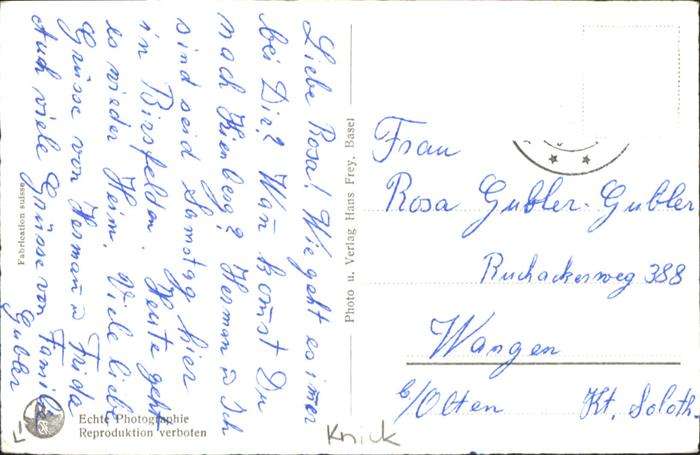 Liebe Rosa! Wie geht es imer
bei Dir? Wan komst Du
nach Kienberg? Herman u Ich
sind seid Samstag hier
in Birsfelden. Heute geht
es wieder Heim. Viele liebe
Grüsse von Herman u Frida
Auch viele Grüsse von Famile
Gubler
Fabrication suisse
Echte Photographie
Reproduktion verboten
Photo u. Verlag Hans Frey, Basel
Frau
Rosa Gubler-Gubler
Ruchackerweg 388
Wangen
b/Olten Kt. Soloth.
Knick